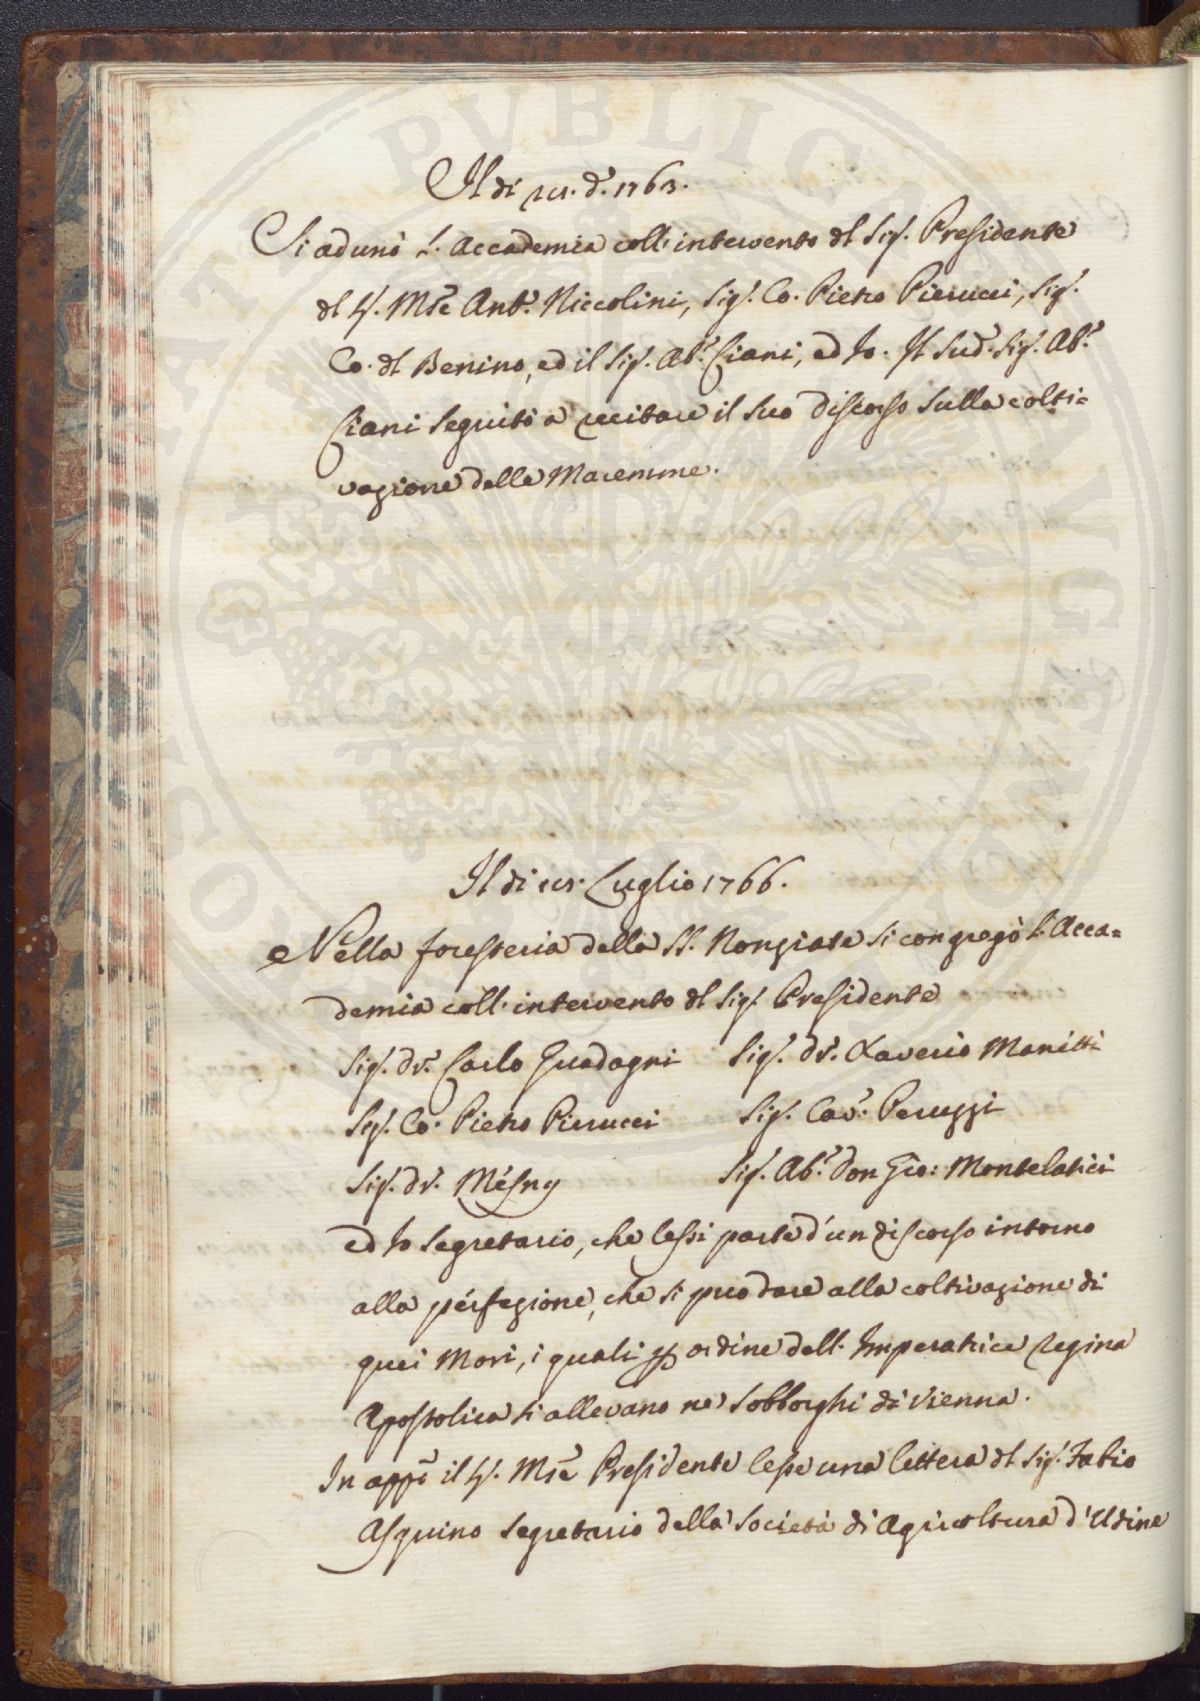 Il di 21. d.º 1763.
Si adunò l'Accademia coll'intervento dl Sig.r Presidente
dl Sr. Mse Ant.º Niccolini, Sig.r Co. Pietro Pierucci, Sig.r
Co. dl Benino, ed il Sig.r Ab.e Ciani, ed Io. Il Sud.º Sig.r Ab.e
Ciani seguitò a recitare il suo discorso sulla colti=
vazione delle Maremme.
Il di Luglio 1766.
Nella foresteria della SS. Nonziata si congregò l'Acca=
demia coll'intervento dl Sig.r Presidente
Sig.r Dr. Carlo Guadagni Sig.r Dr. Xaverio Manetti
Sig.r Co. Pietro Pierucci Sig.r Cav.e Peruzzi
Sig.r Dr. Mesny Sig.r Ab.e Don Gio: Montelatici
ed Io Segretario, che lessi parte d'un discorso intorno
alla perfezione, che si puo dare alla coltivazione di
quei Mori, i quali p ordine dell'Imperatrice Regina
Apostolica si allevano ne' Sobborghi di Vienna.
In app.º il Sr. Mse Presidente lesse una lettera dl Sig.r Fabio
Asquino Segretario della Società di Agricoltura d'Udine